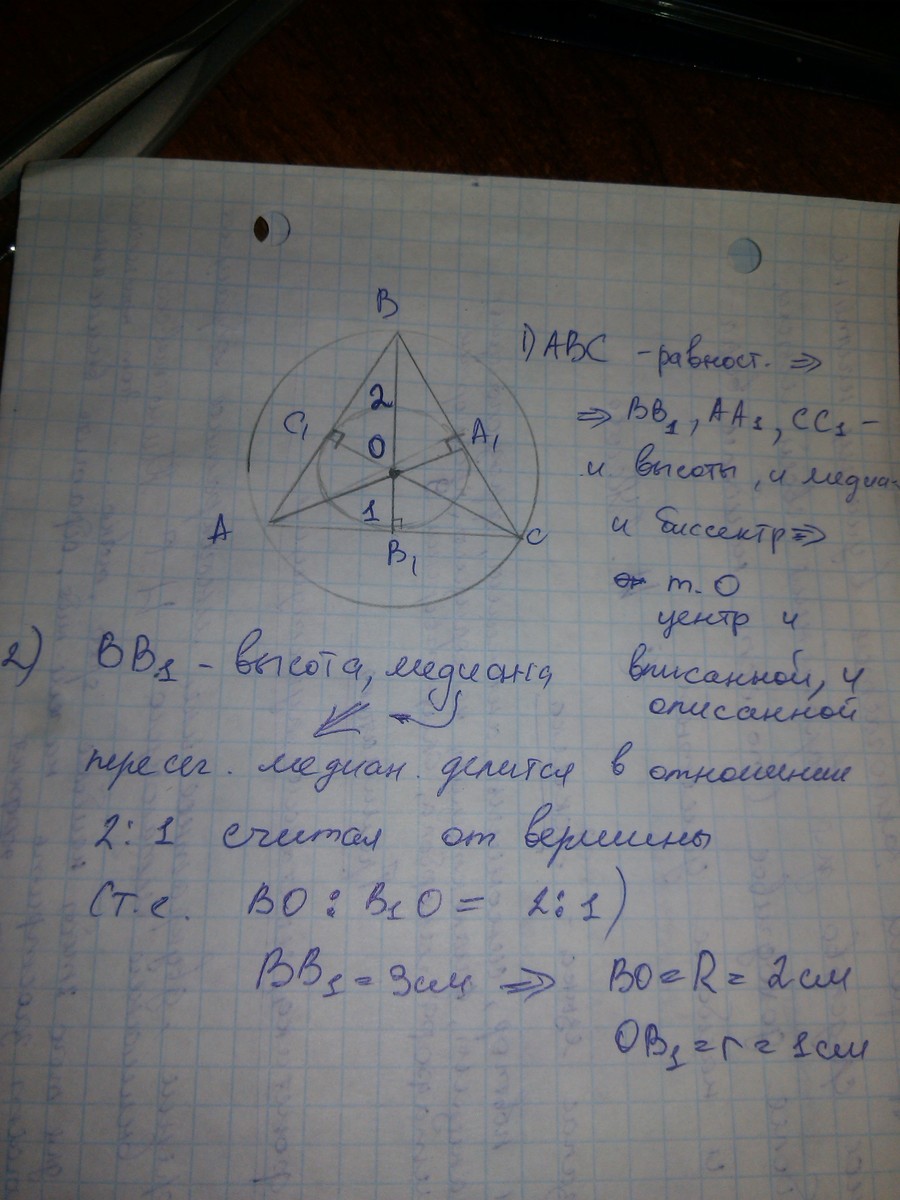 B
2
C₁
O
A₁
1
A
B₁
C
1) ABC - равност. ⇒
⇒ BB₁, AA₁, CC₁ -
и высоты, и медиа-
и биссектр ⇒
т. O
центр и
вписанной, и
описанной
2) BB₁ - высота, медиана
пересег. медиан. делится в отношении
2:1 считая от вершины
(т.е. BO : B₁O = 2:1)
BB₁ = 3см ⇒ BO = R = 2см
OB₁ = r = 1см